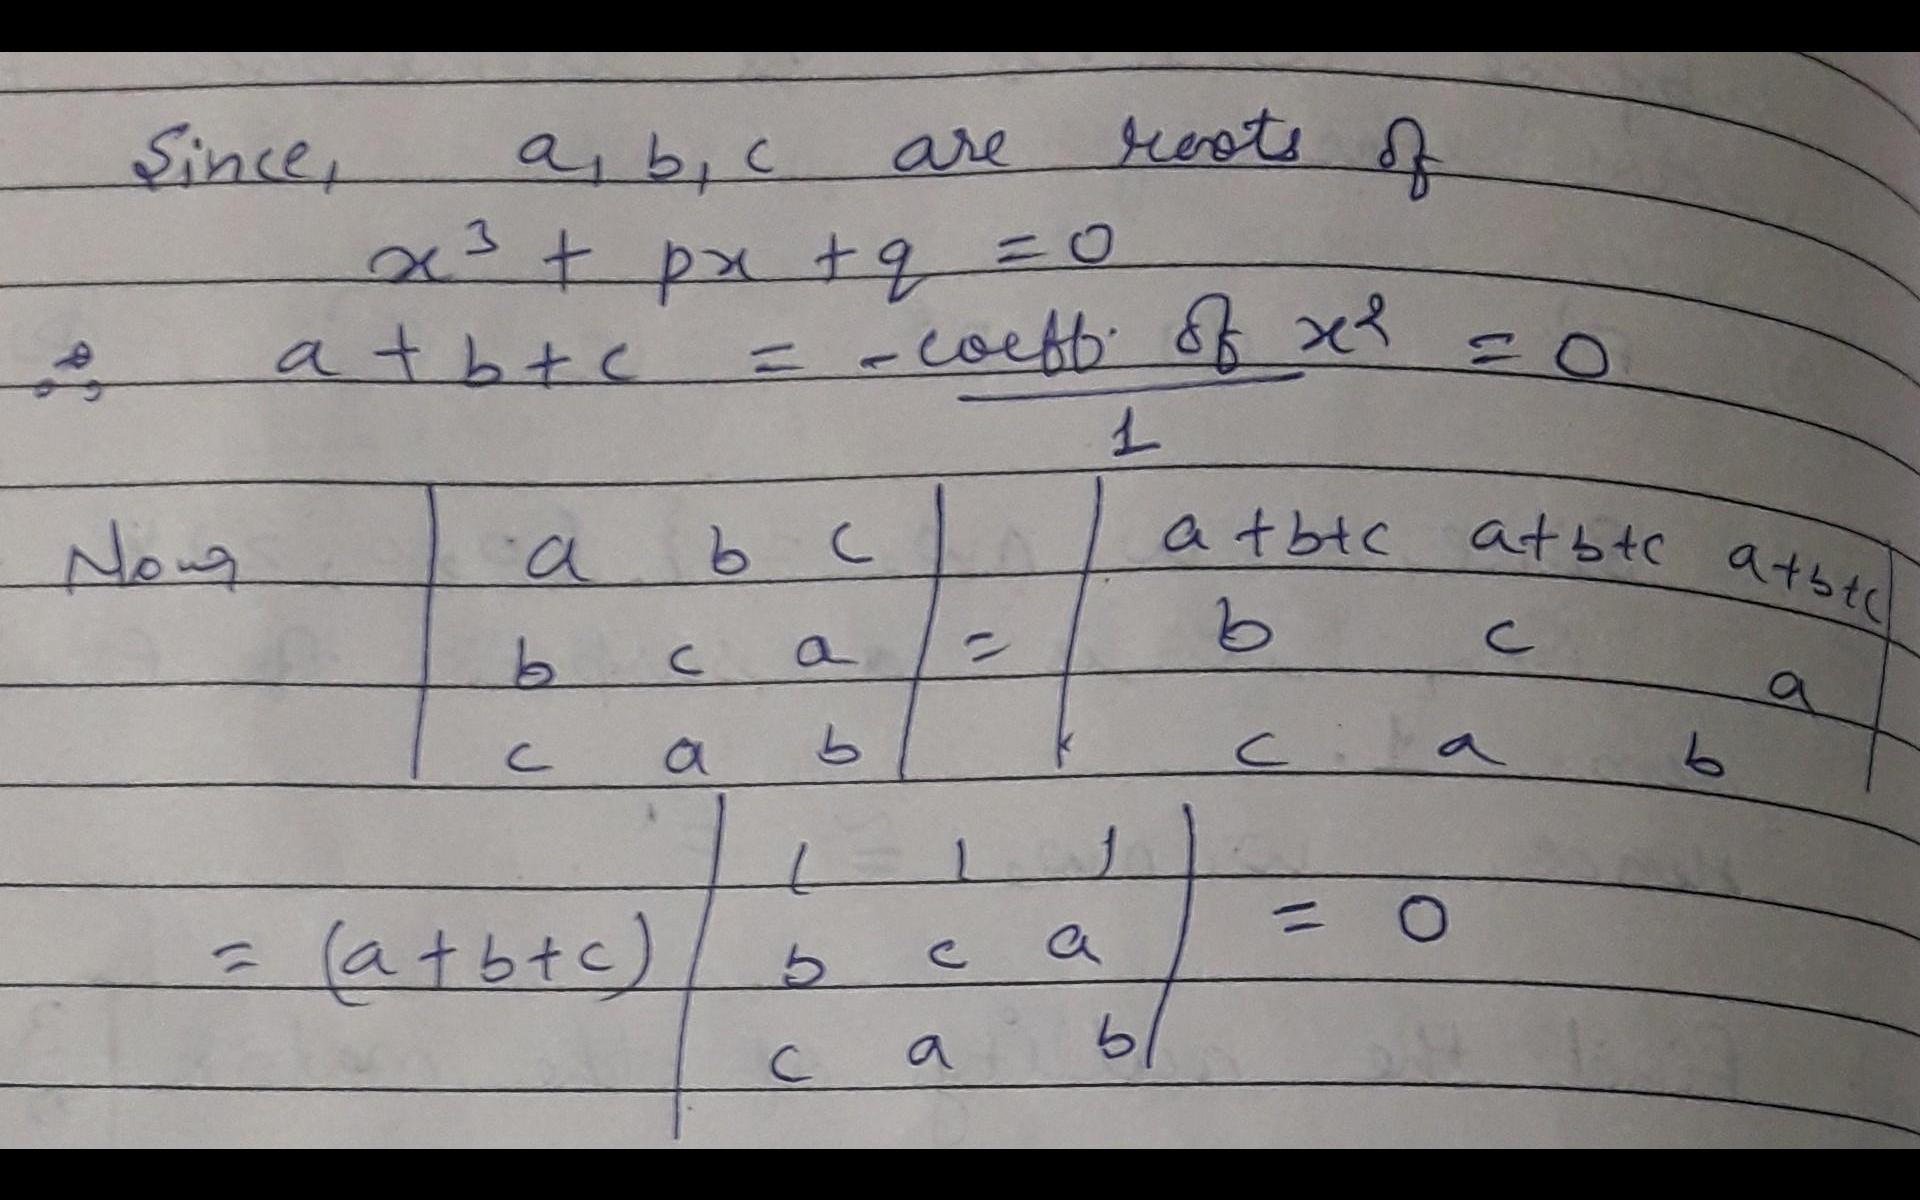 Since, a, b, c are roots of
x³ + px + q = 0
∴ a + b + c = -coeff. of x² = 0
1
Now | a b c | = | a+b+c a+b+c a+b+c |
| b c a | | b c a |
| c a b | | c a b |
= (a+b+c) | 1 1 1 | = 0
| b c a |
| c a b |